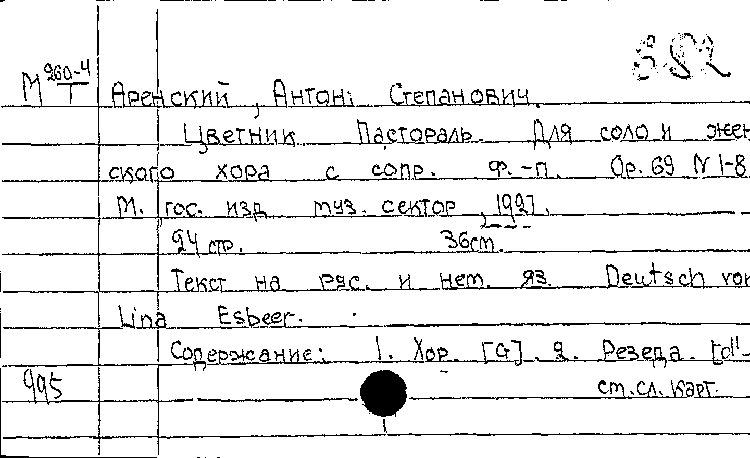 882
М 260-4/Т Аренский, Антоні Степанович.
Цветник Пастораль. Для соло и жен
ского хора с сопр. ф.-п. Op. 69 N 1-8
М. гос. изд муз. сектор, 1927.
24 стр. 36 cm.
Текст на рус. и нем. яз. Deutsch von
Lina Esbeer.
Содержание: 1. Хор. [G]. 2. Резеда. [d"-
995 см. сл. карт.